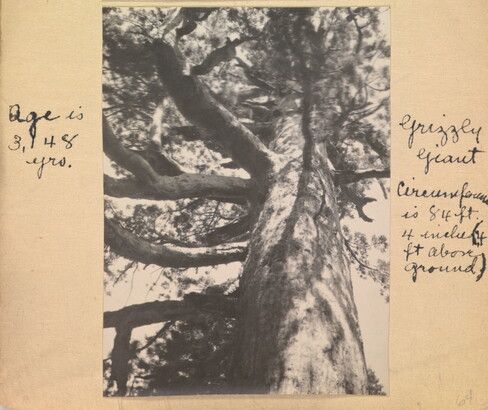 Age is
3,148
yrs.
Grizzly
Giant
Circumference
is 84 ft.
4 inches (4
ft above
ground)
64